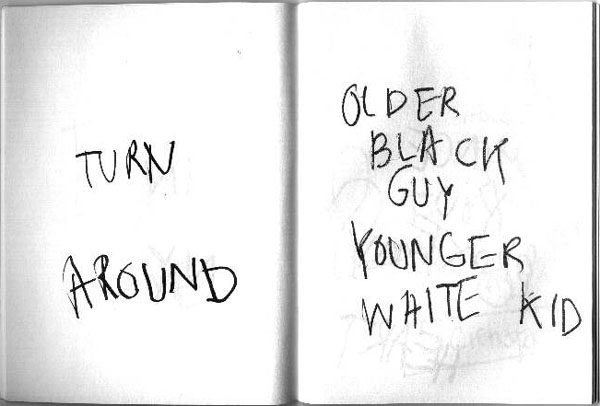 TURN
AROUND
OLDER
BLACK
GUY
YOUNGER
WHITE KID